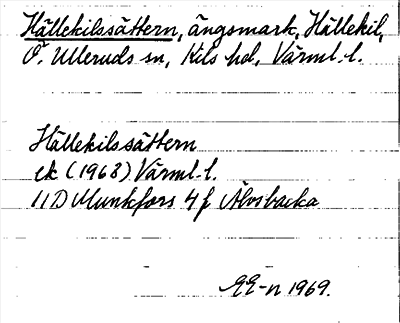 Hällekilssättern, ängsmark, Hällekil,
Ö. Ulleruds sn, Kils hd, Värml. l.
Hällekilssättern
ek (1968) Värml. l.
11D Munkfors 4 f Älvsbacka
EE-n 1969.